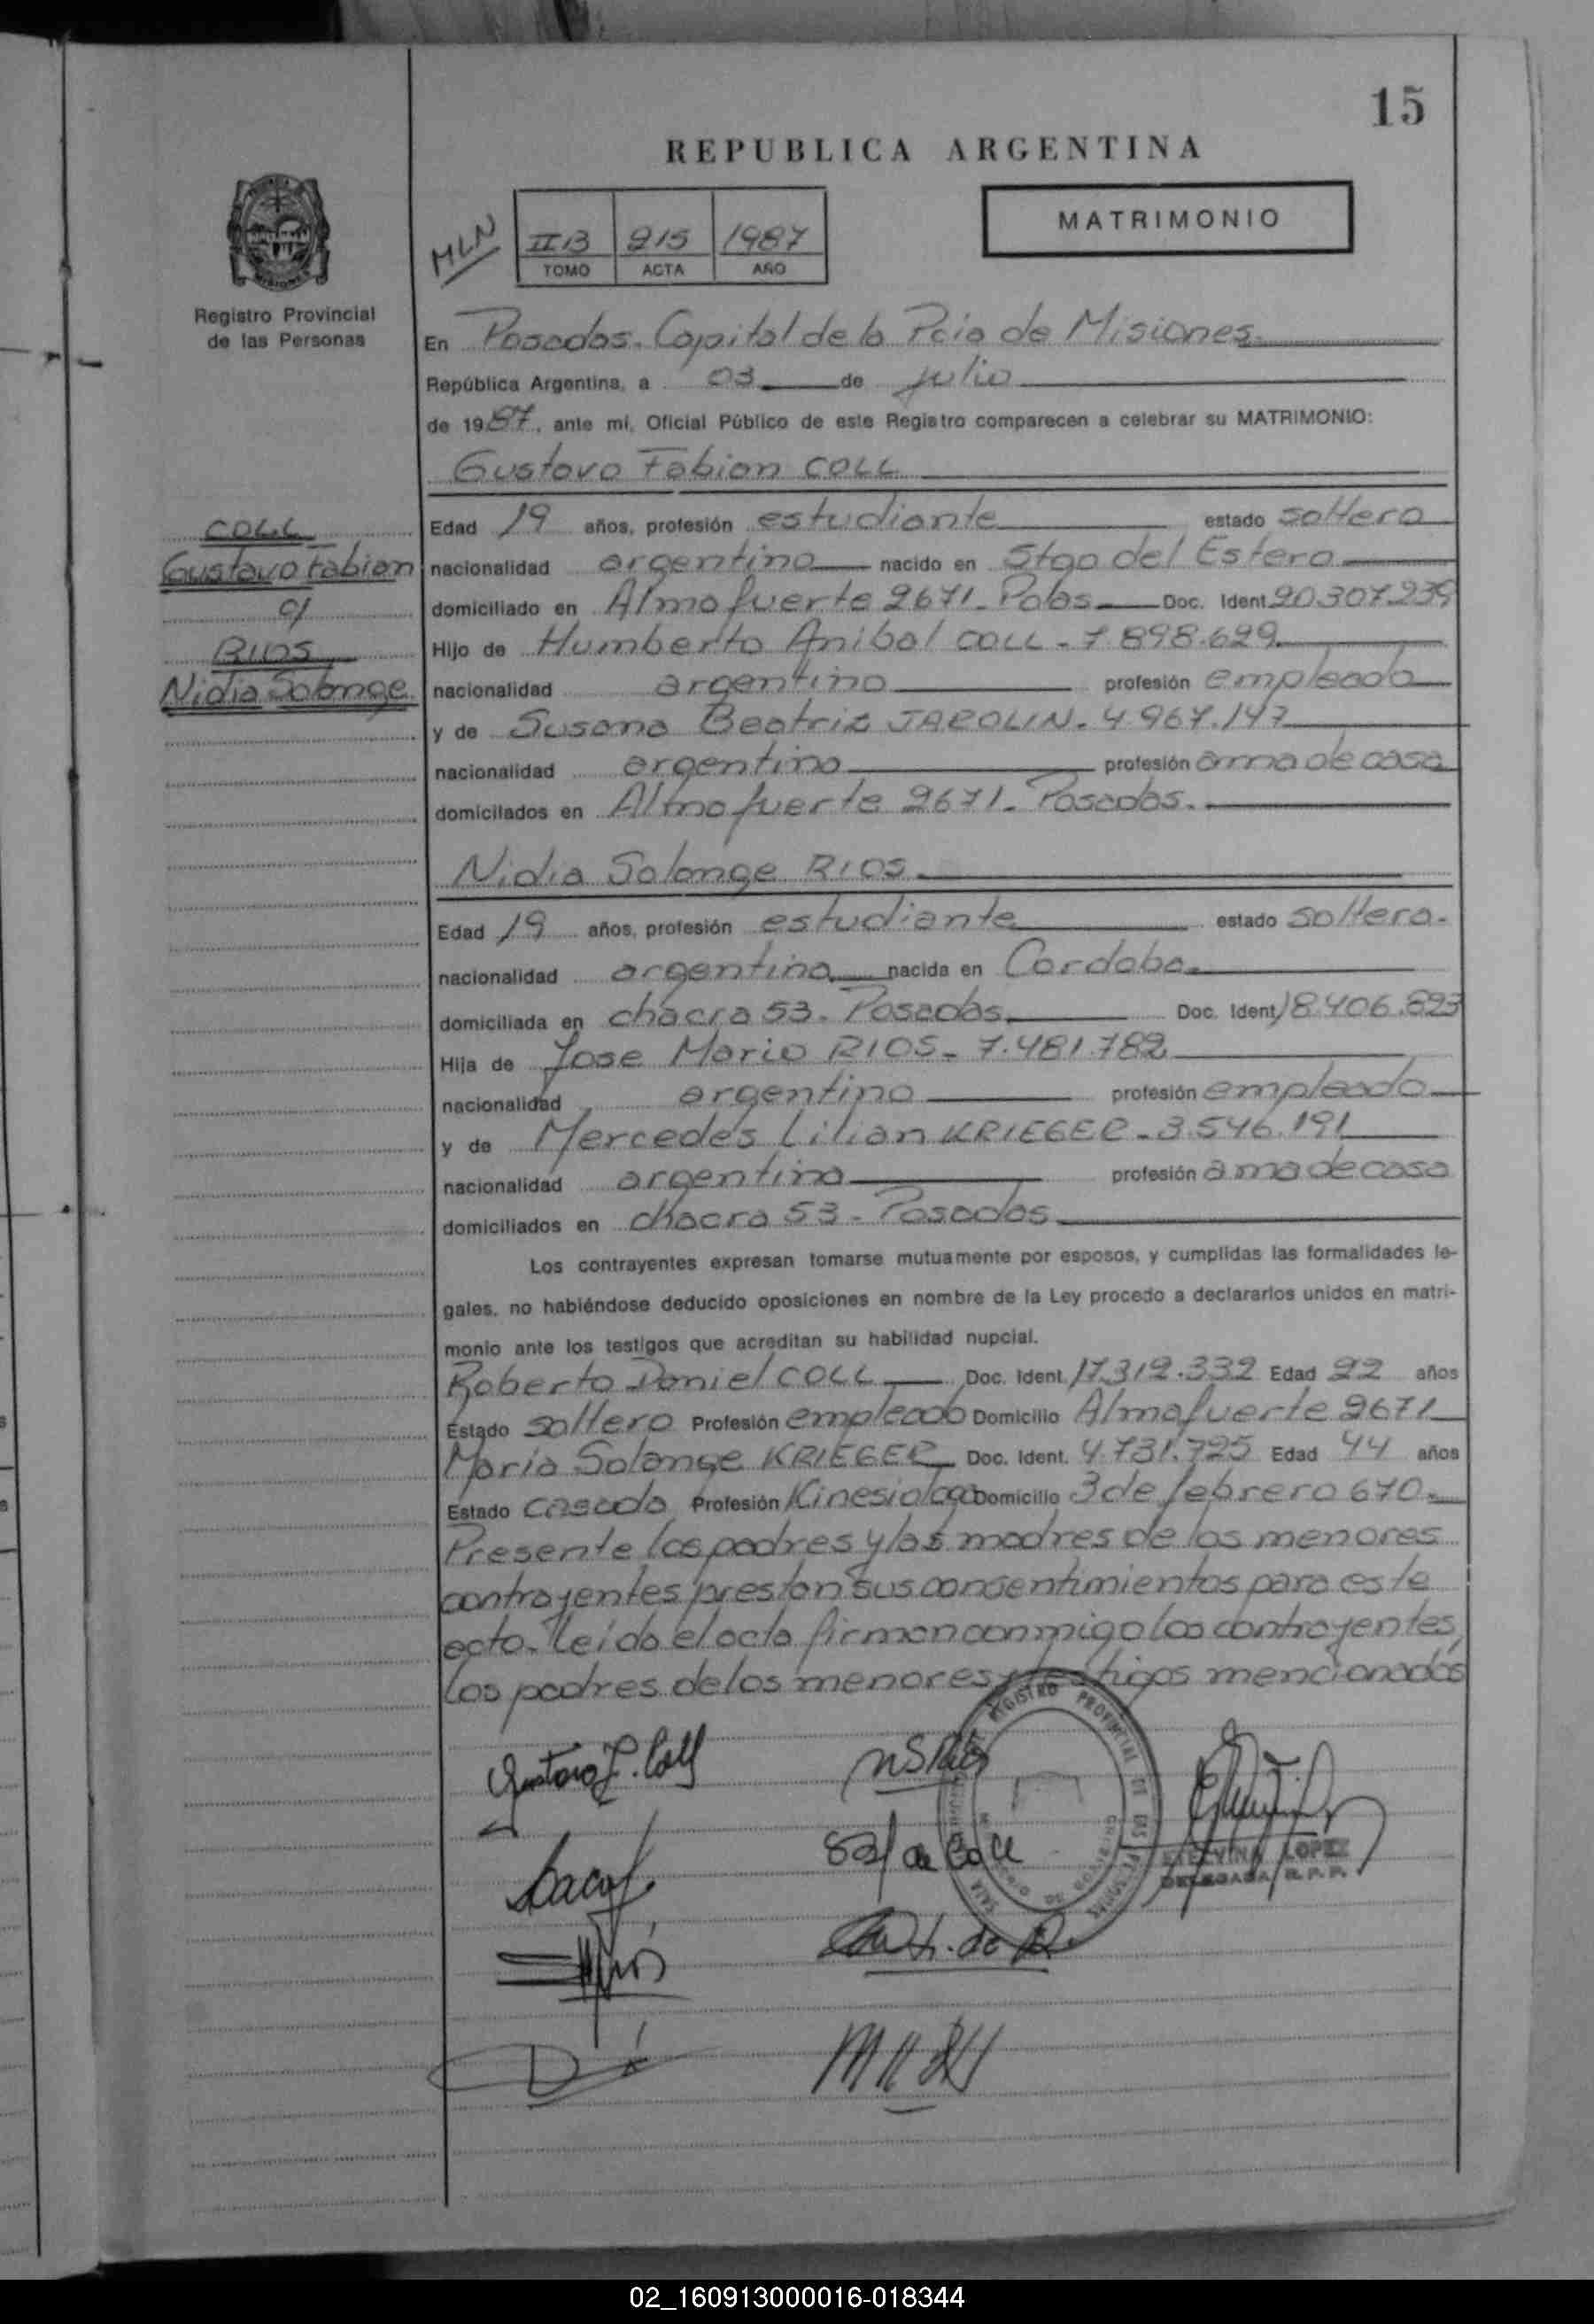 15
REPUBLICA ARGENTINA
MLN
II B 215 1987
TOMO ACTA AÑO
MATRIMONIO
Registro Provincial
de las Personas
En Posadas. Capital de la Pcia de Misiones
República Argentina, a 03 de julio
de 1987, ante mí, Oficial Público de este Registro comparecen a celebrar su MATRIMONIO:
Gustavo Fabian COLL
COLL
Gustavo Fabian
c/
RIOS
Nidia Solange
Edad 19 años, profesión estudiante estado soltero
nacionalidad argentina nacido en Stgo del Estero
domiciliado en Almafuerte 2671 - Pdas Doc. Ident 20.307.239
Hijo de Humberto Anibal COLL - 7.898.629
nacionalidad argentino profesión empleado
y de Susana Beatriz JAROLIN - 4.967.147
nacionalidad argentina profesión ama de casa
domicilados en Almafuerte 2671 - Posadas.
Nidia Solange RIOS
Edad 19 años, profesión estudiante estado soltera.
nacionalidad argentina nacida en Cordoba
domiciliada en chacra 53 - Posadas Doc. Ident 18.406.823
Hija de Jose Mario RIOS - 7.481.782
nacionalidad argentino profesión empleado
y de Mercedes Lilian KRIEGER - 3.546.191
nacionalidad argentina profesión ama de casa
domiciliados en chacra 53 - Posadas
Los contrayentes expresan tomarse mutuamente por esposos, y cumplidas las formalidades le-
gales, no habiéndose deducido oposiciones en nombre de la Ley procedo a declararlos unidos en matri-
monio ante los testigos que acreditan su habilidad nupcial.
Roberto Daniel COLL Doc. Ident. 17.312.332 Edad 22 años
Estado soltero Profesión empleado Domicilio Almafuerte 2671
Maria Solange KRIEGER Doc. Ident. 4.731.725 Edad 44 años
Estado casada Profesión Kinesiologa Domicilio 3 de febrero 670
Presente los padres y las madres de los menores
contrayentes prestan sus consentimientos para este
acto. Leída el acta firman conmigo los contrayentes,
los padres de los menores y testigos mencionados
Gustavo F. Coll
REGISTRO PROVINCIAL DE LAS PERSONAS
de Coll
ETELVINA LOPEZ
DELEGADA R. P. P.
de R.
02_160913000016-018344